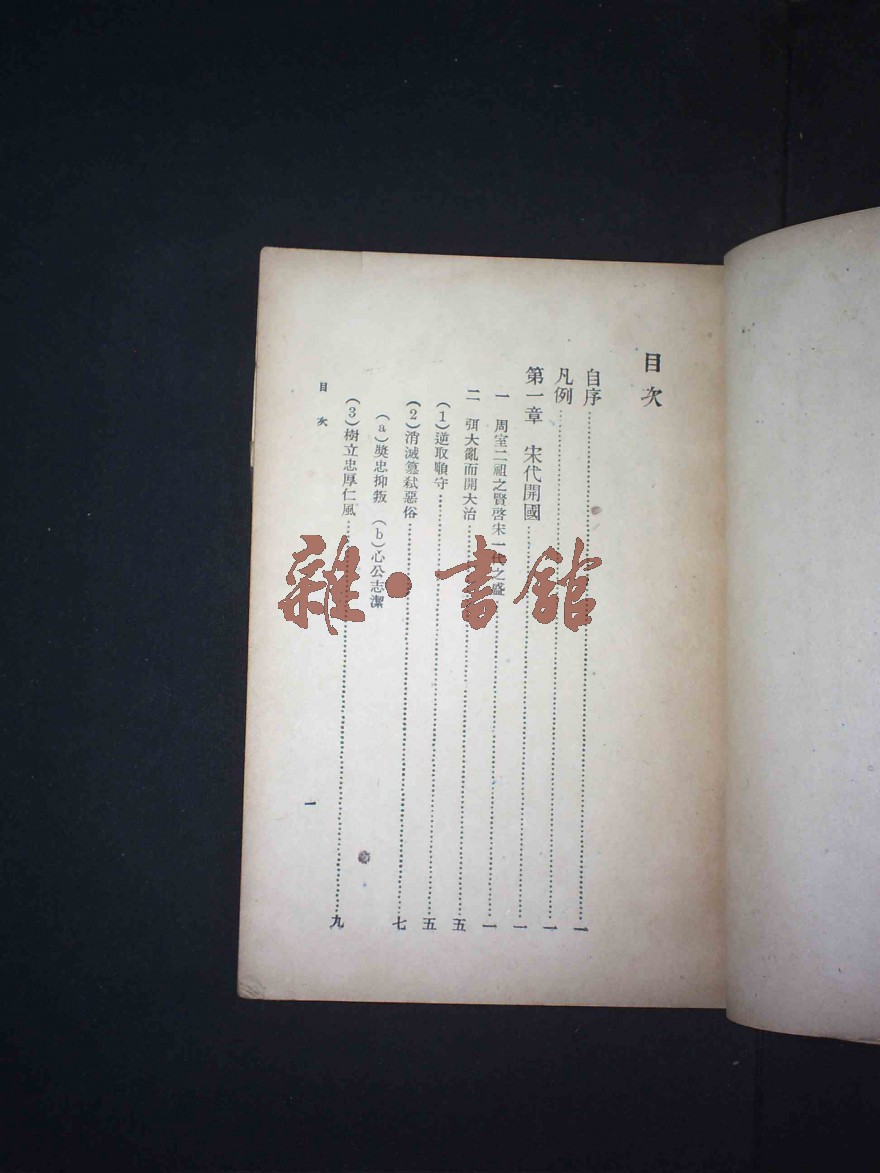 目次
自序……一
凡例……一
第一章　宋代開國……一
一　周室二祖之賢啓宋一代之盛……一
二　弭大亂而開大治……五
(1)逆取順守……五
(2)消滅簒弑惡俗……七
(a)奬忠抑叛　(b)心公志潔
(3)樹立忠厚仁風……九
目次
一
雜·書館